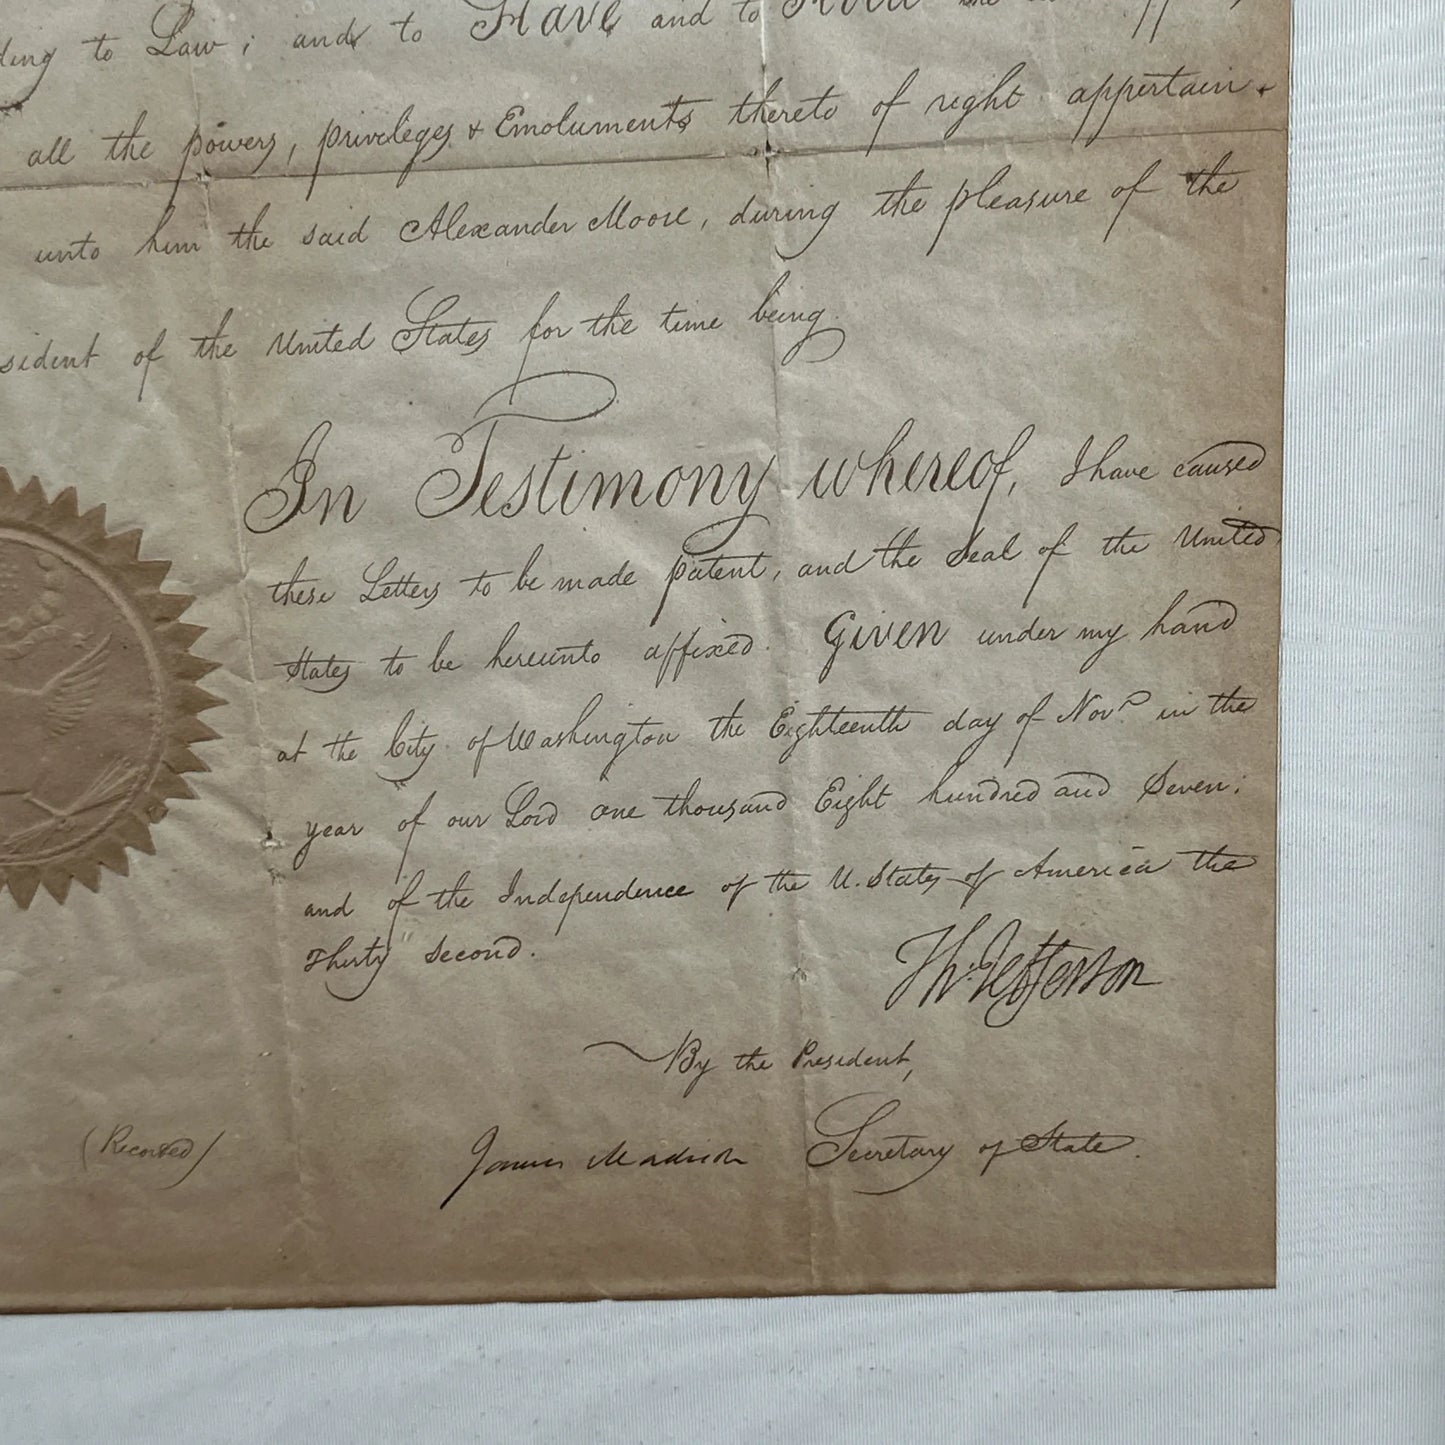 ding to Law; and to Have and to Hold the
all the powers, privileges & Emoluments thereto of right appertain.
unto him the said Alexander Moore, during the pleasure of the
sident of the United States for the time being.
In Testimony whereof, I have caused
these Letters to be made patent, and the Seal of the United
States to be hereunto affixed. Given under my hand
at the City of Washington the Eighteenth day of Novr. in the
year of our Lord one thousand Eight hundred and Seven;
and of the Independence of the U. States of America the
Thirty Second.
Th: Jefferson
By the President,
James Madison Secretary of State.
(Recorded)